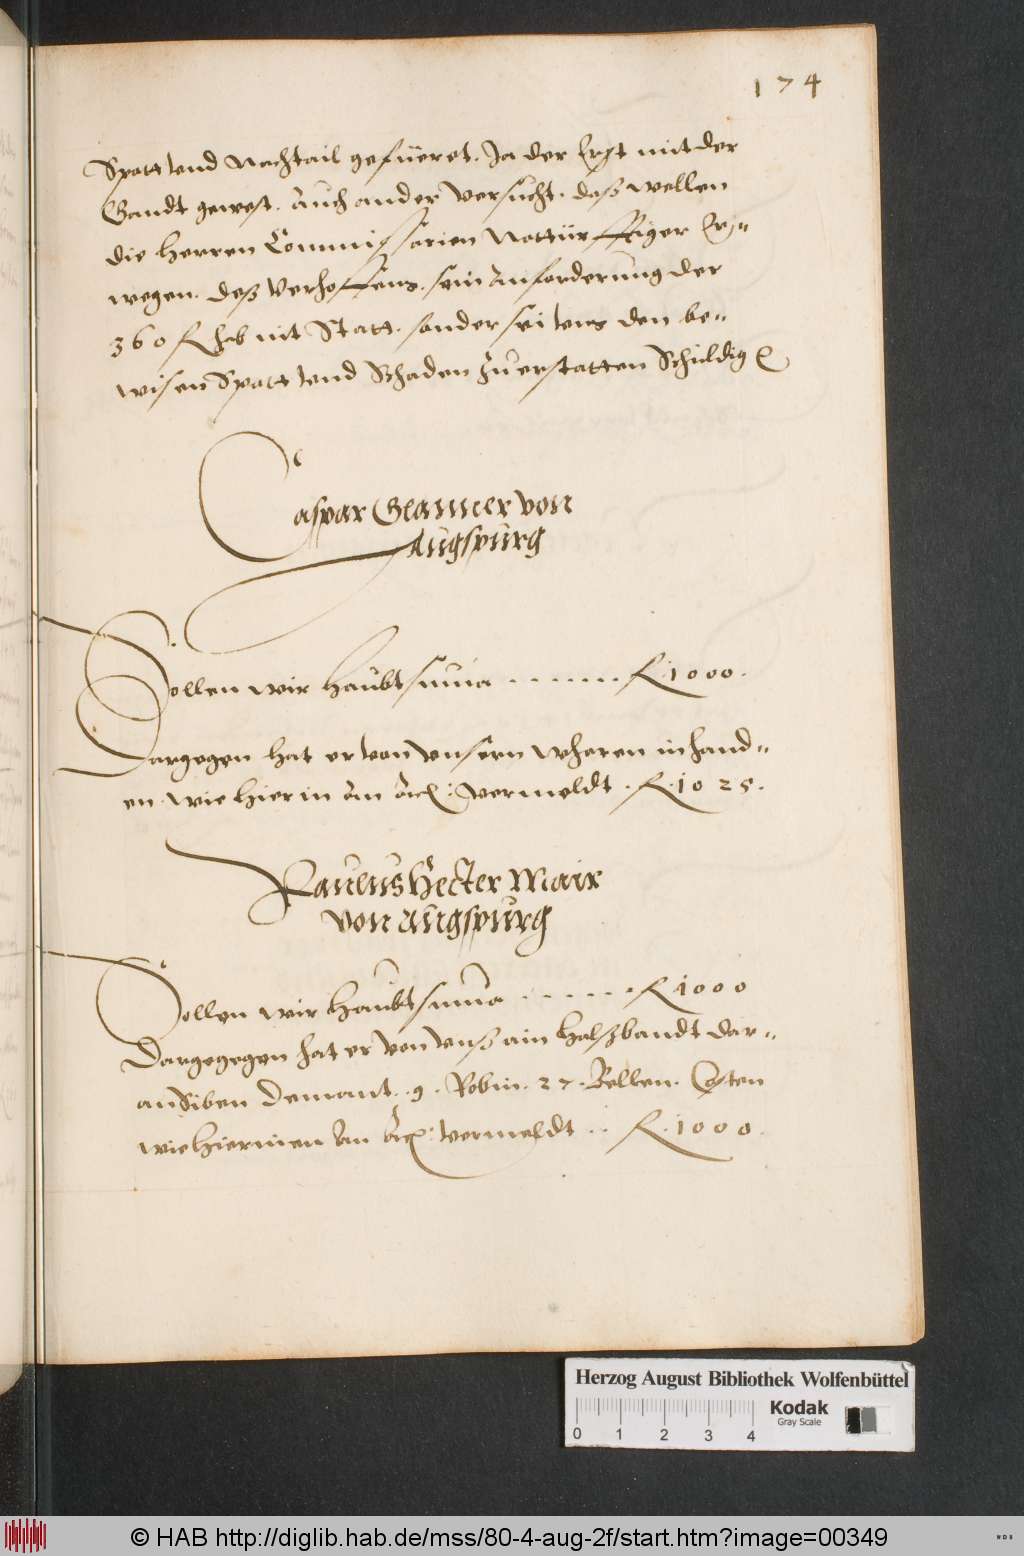 174
Spott vnd Nachtail gefüeret. In der Erst mit der
Gandt gewest. Auch ander versücht. daß wellen
die Herren Commissarien Notturfftiger Er=
wegen. deß Verhoffens. sein Anforderung der
360 R hab nit Statt. sonder sei vns den be=
wisen Spott vnd Schaden Zu erstatten Schuldig
Caspar Glanner von
Augspurg
Sollen wir Haubtsuma . . . . . . . R 1000.
Dargegen hat er von vnsern Wharen in hand=
en. wie hierin Am : vermeldt . R. 1025.
Paulus Hecter Mair
von Augspurg
Sollen wir Haubtsuma . . . . . . R 1000
Dargegegen hat er von vnß ain Halßbandt dar=
an Siben Demant. 9. Robin. 27. Bellen. Costen
wie hierinen Am : vermeldt . . R. 1000.
Herzog August Bibliothek Wolfenbüttel
Kodak
Gray Scale
0 1 2 3 4
© HAB http://diglib.hab.de/mss/80-4-aug-2f/start.htm?image=00349